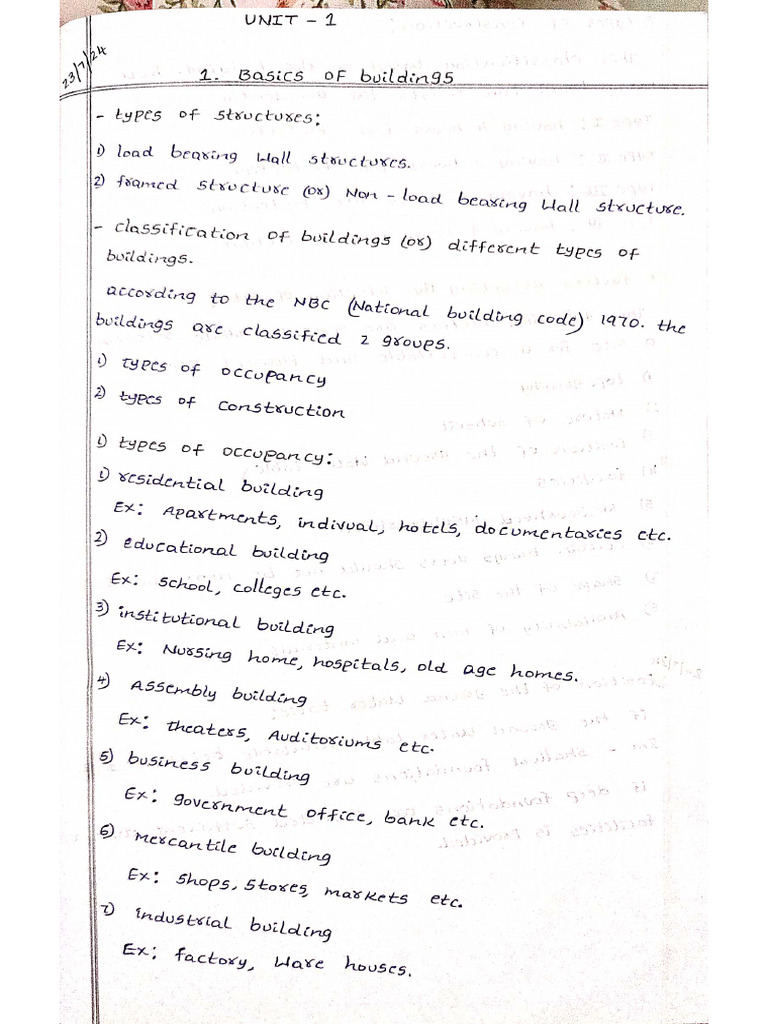 UNIT - 1
23/7/24
1. Basics of buildings
- types of structures:
1) load bearing Wall structures.
2) framed structure (or) Non - load bearing Wall structure.
- classification of buildings (or) different types of
buildings.
according to the NBC (National building code) 1970. the
buildings are classified 2 groups.
1) types of occupancy
2) types of construction
1) types of occupancy:
1) residential building
Ex: Apartments, indivual, hotels, documentaries etc.
2) educational building
Ex: school, colleges etc.
3) institutional building
Ex: Nursing home, hospitals, old age homes.
4) Assembly building
Ex: theaters, Auditoriums etc.
5) business building
Ex: government office, bank etc.
6) mercantile building
Ex: shops, stores, markets etc.
7) industrial building
Ex: factory, Ware houses.